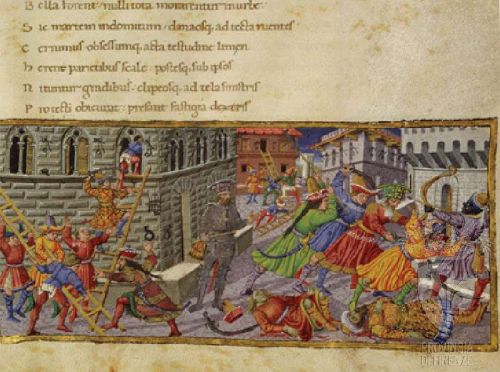 B ella forent · nulli tota morarentur in urbe ·
S ic martem indomitum · danaosq; ad tecta ruentes
C ernimus obsessumq; acta testudine limen
H erent parietibus scale · postesq; sub ipsos
N ituntur gradibus · clipeosq; ad tela sinistris
P rotecti obicunt · presant fastigia dextris
PROVINCIA
DI FIRENZE